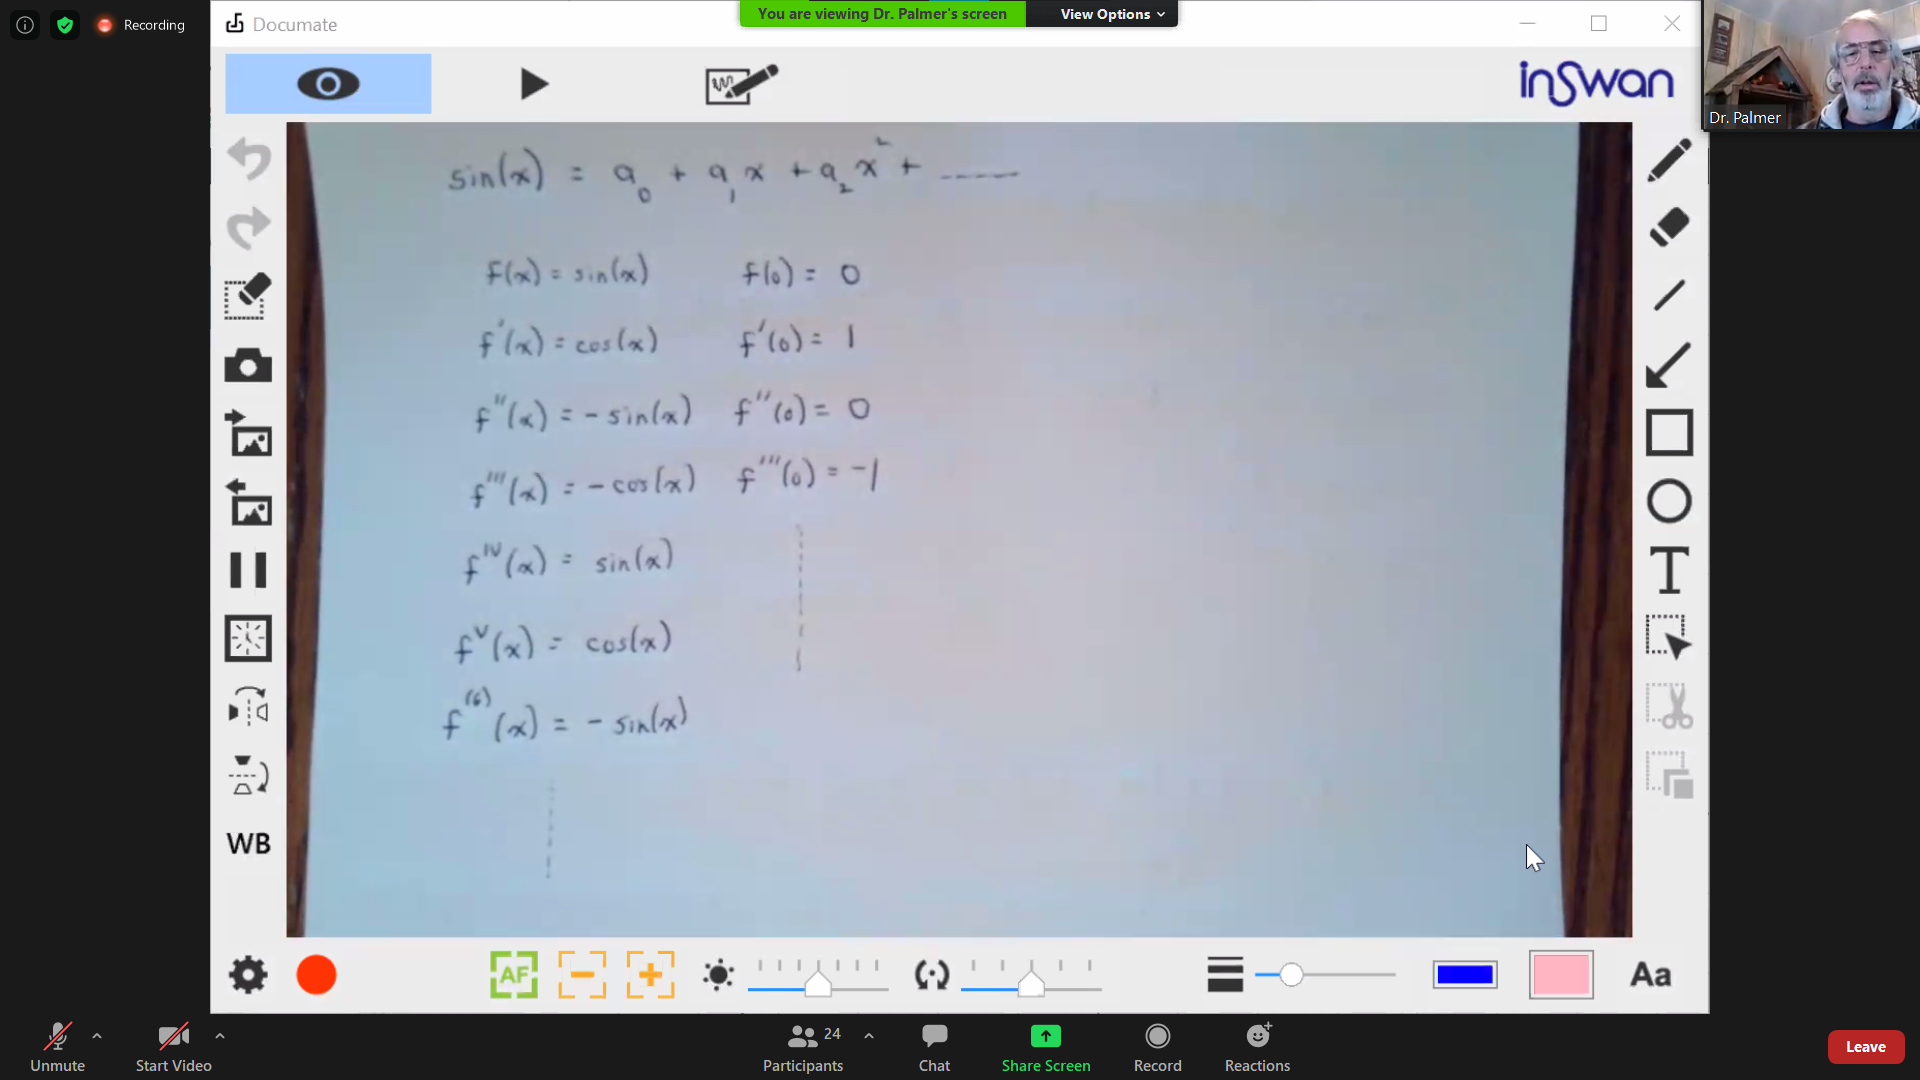 Recording
Documate
You are viewing Dr. Palmer's screen
View Options
inSwan
Dr. Palmer
sin(x) = a₀ + a₁x + a₂x² + -----
f(x) = sin(x) f(0) = 0
f'(x) = cos(x) f'(0) = 1
f''(x) = - sin(x) f''(0) = 0
f'''(x) = - cos(x) f'''(0) = -1
f^IV(x) = sin(x)
f^V(x) = cos(x)
f^(6)(x) = - sin(x)
T
WB
AF
Aa
Unmute
Start Video
Participants 24
Chat
Share Screen
Record
Reactions
Leave